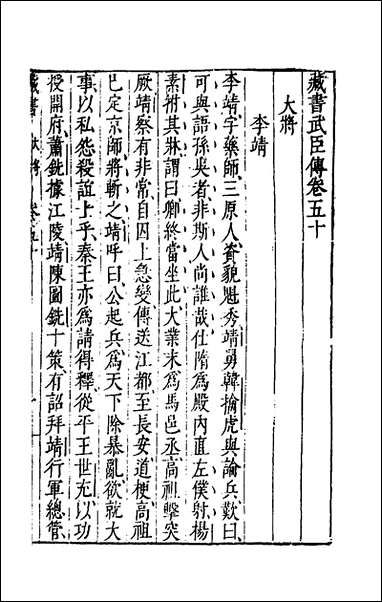 藏書武臣傳卷五十
大將
李靖
李靖字藥師三原人資貌魁秀靖舅韓擒虎與論兵歎曰
可與語孫吳者非斯人尚誰哉仕隋爲殿內直左僕射楊
素拊其牀謂曰卿終當坐此大業末爲馬邑丞高祖擊突
厥靖察有非常自囚上急變傳送江都至長安道梗高祖
已定京師將斬之靖呼曰公起兵爲天下除暴亂欲就大
事以私怨殺誼士乎秦王亦爲請得釋從平王世充以功
授開府蕭銑據江陵靖陳圖銑十策有詔拜靖行軍總管
藏書 大將 卷五十